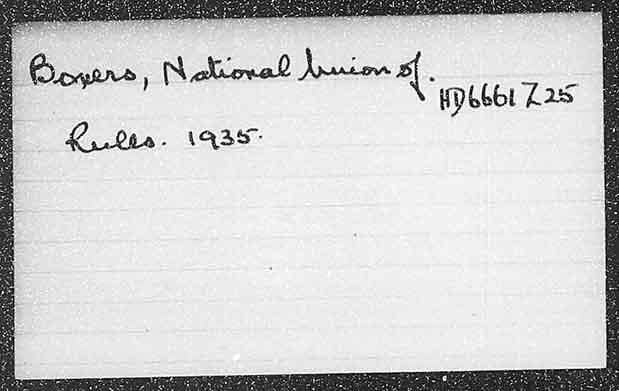 Boxers, National Union of.
HD6661 Z25
Rules. 1935.